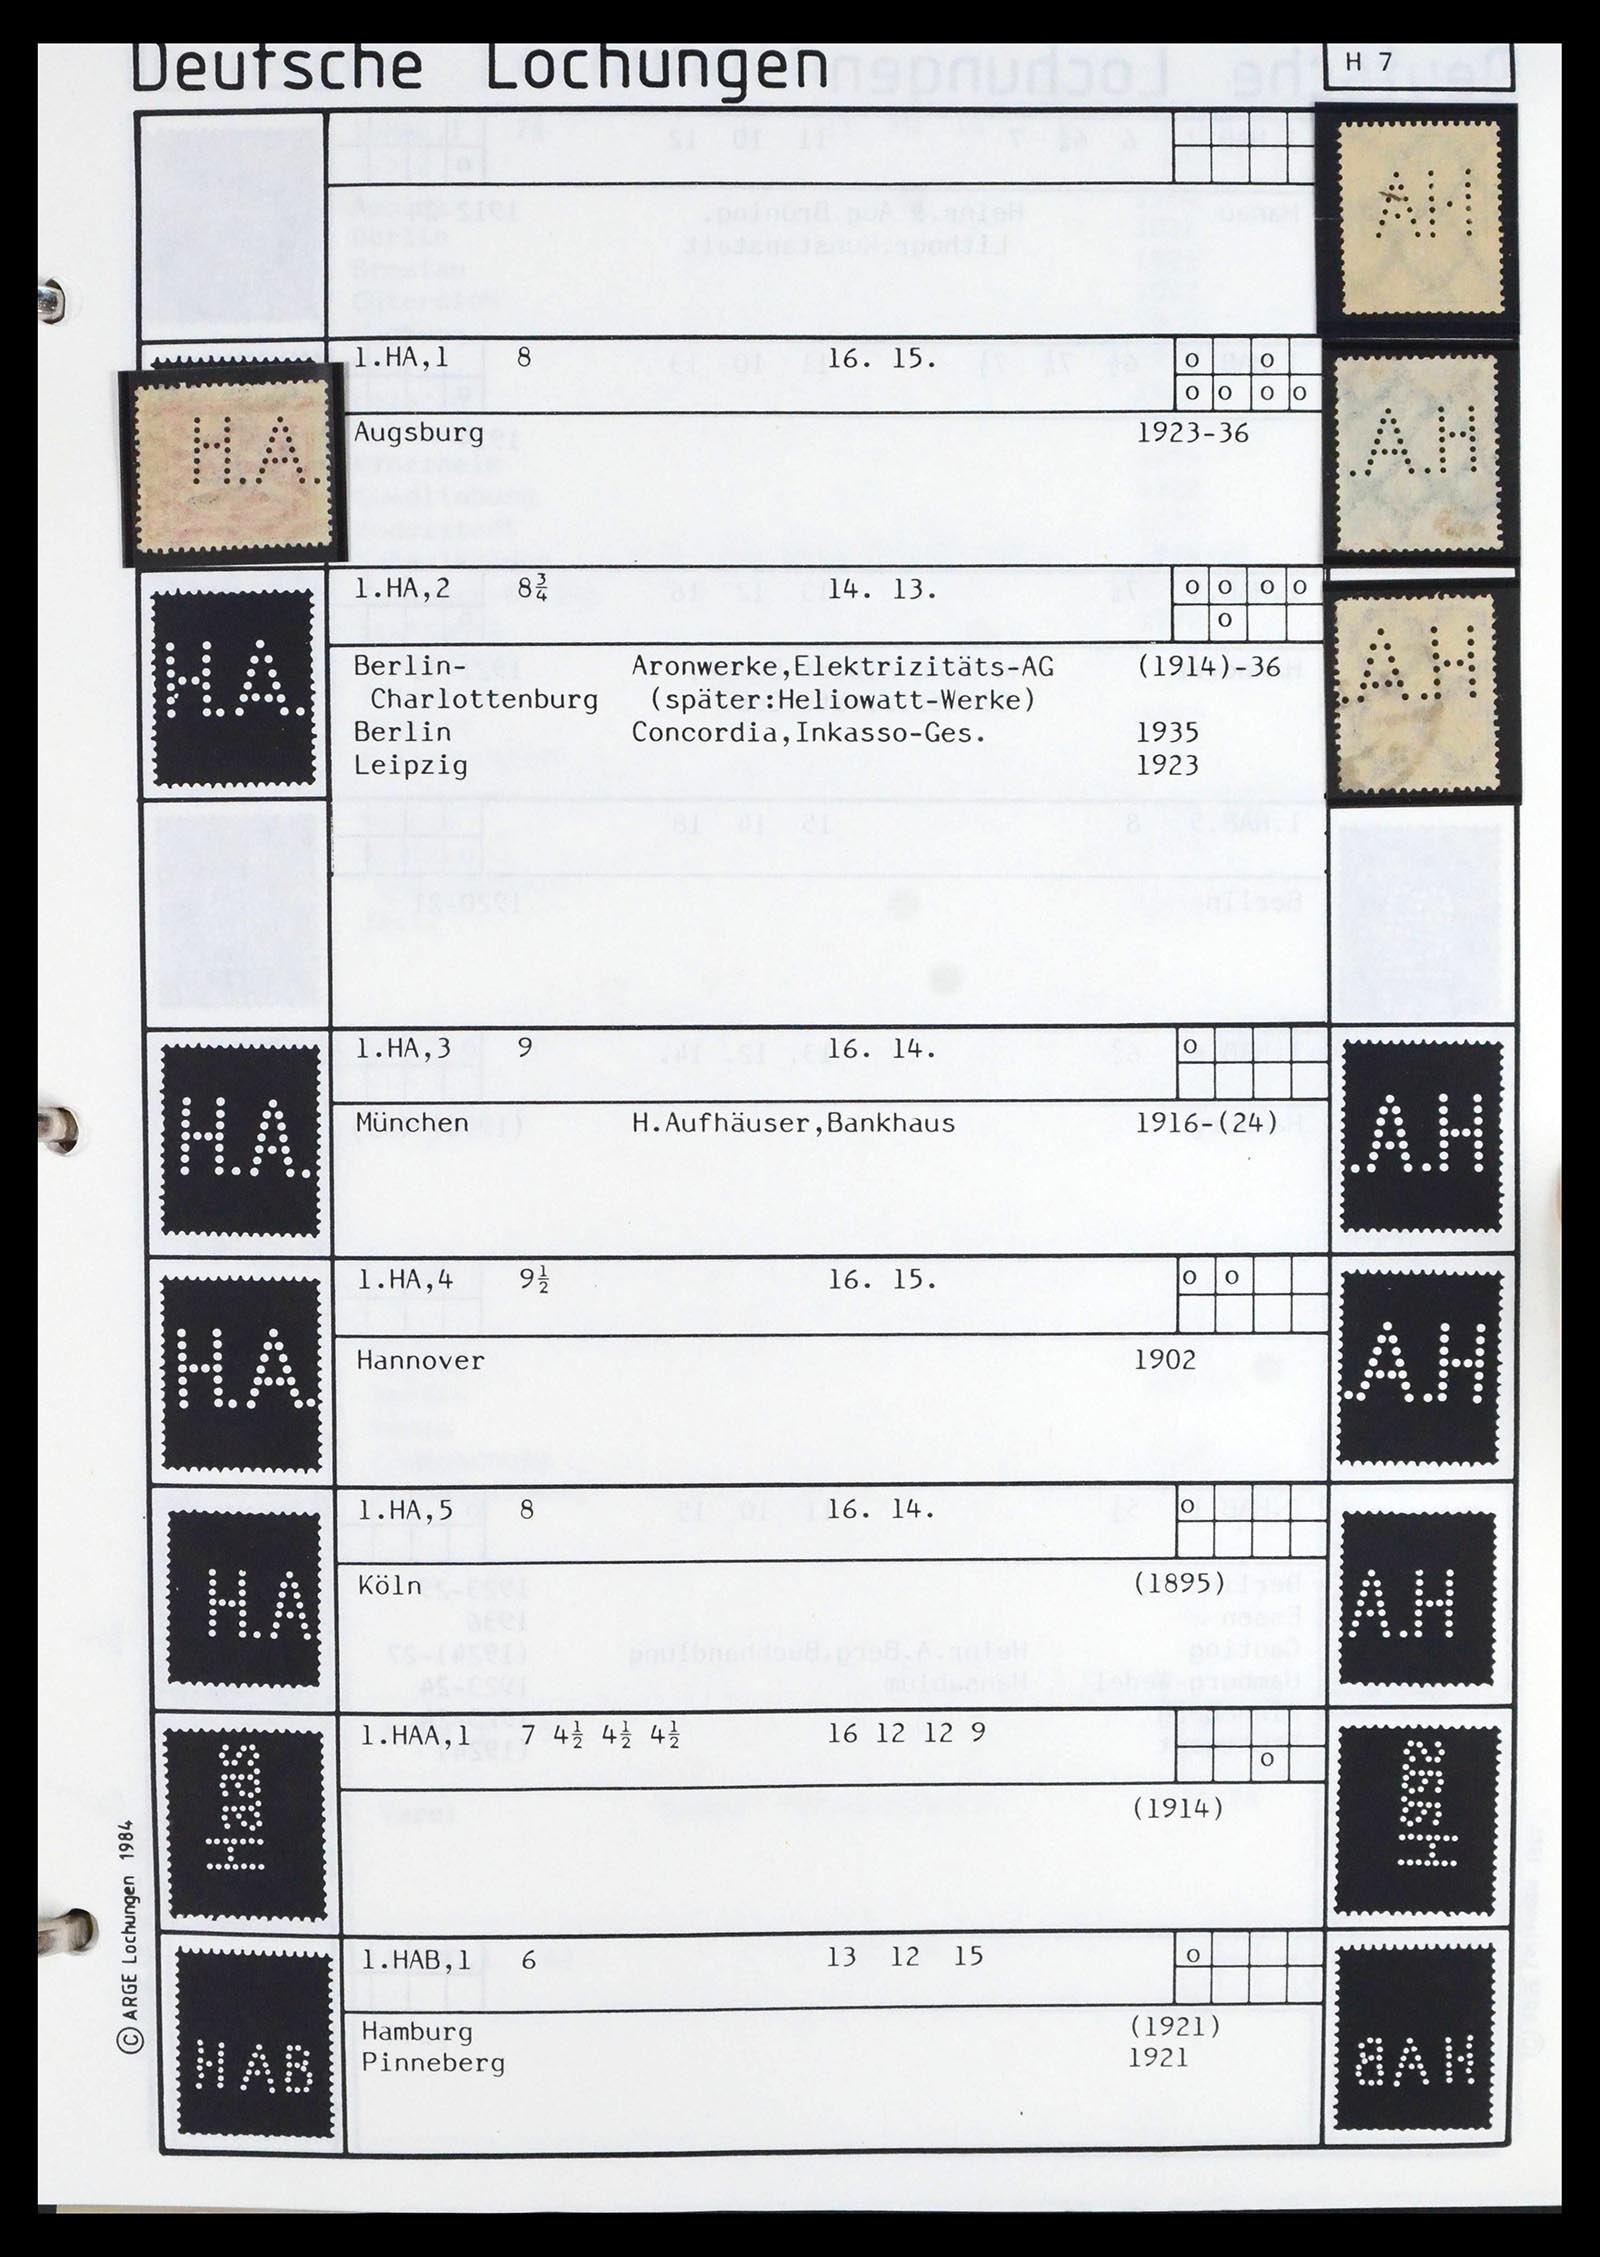 Deutsche Lochungen
H 7
HA
1.HA,1 8 16. 15.
o o
o o o o
H.A.
Augsburg 1923-36
H.A.
1.HA,2 8¾ 14. 13.
o o o o
o
H.A.
Berlin- Aronwerke,Elektrizitäts-AG (1914)-36
Charlottenburg (später:Heliowatt-Werke)
Berlin Concordia,Inkasso-Ges. 1935
Leipzig 1923
H.A.
1.HA,3 9 16. 14.
o
H.A.
München H.Aufhäuser,Bankhaus 1916-(24)
H.A.
1.HA,4 9½ 16. 15.
o o
H.A.
Hannover 1902
H.A.
1.HA,5 8 16. 14.
o
H.A
Köln (1895)
H.A
1.HAA,1 7 4½ 4½ 4½ 16 12 12 9
o
Haas
(1914)
Haas
1.HAB,1 6 13 12 15
o
HAB
Hamburg (1921)
Pinneberg 1921
HAB
© ARGE Lochungen 1984